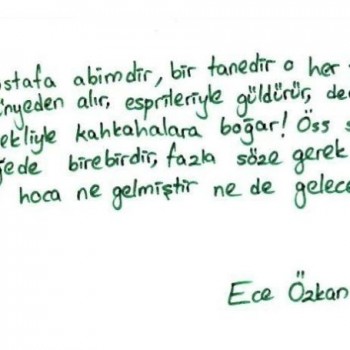 ostafa abimdir, bir tanedir o her
nyeden alır, esprileriyle güldürür, de
ekliyle kahkahalara boğar! Öss s
ede birebirdir, fazla söze gerek
hoca ne gelmiştir ne de gelece
Ece Özkan